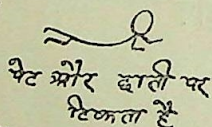 पेट और छाती पर
टिकता है